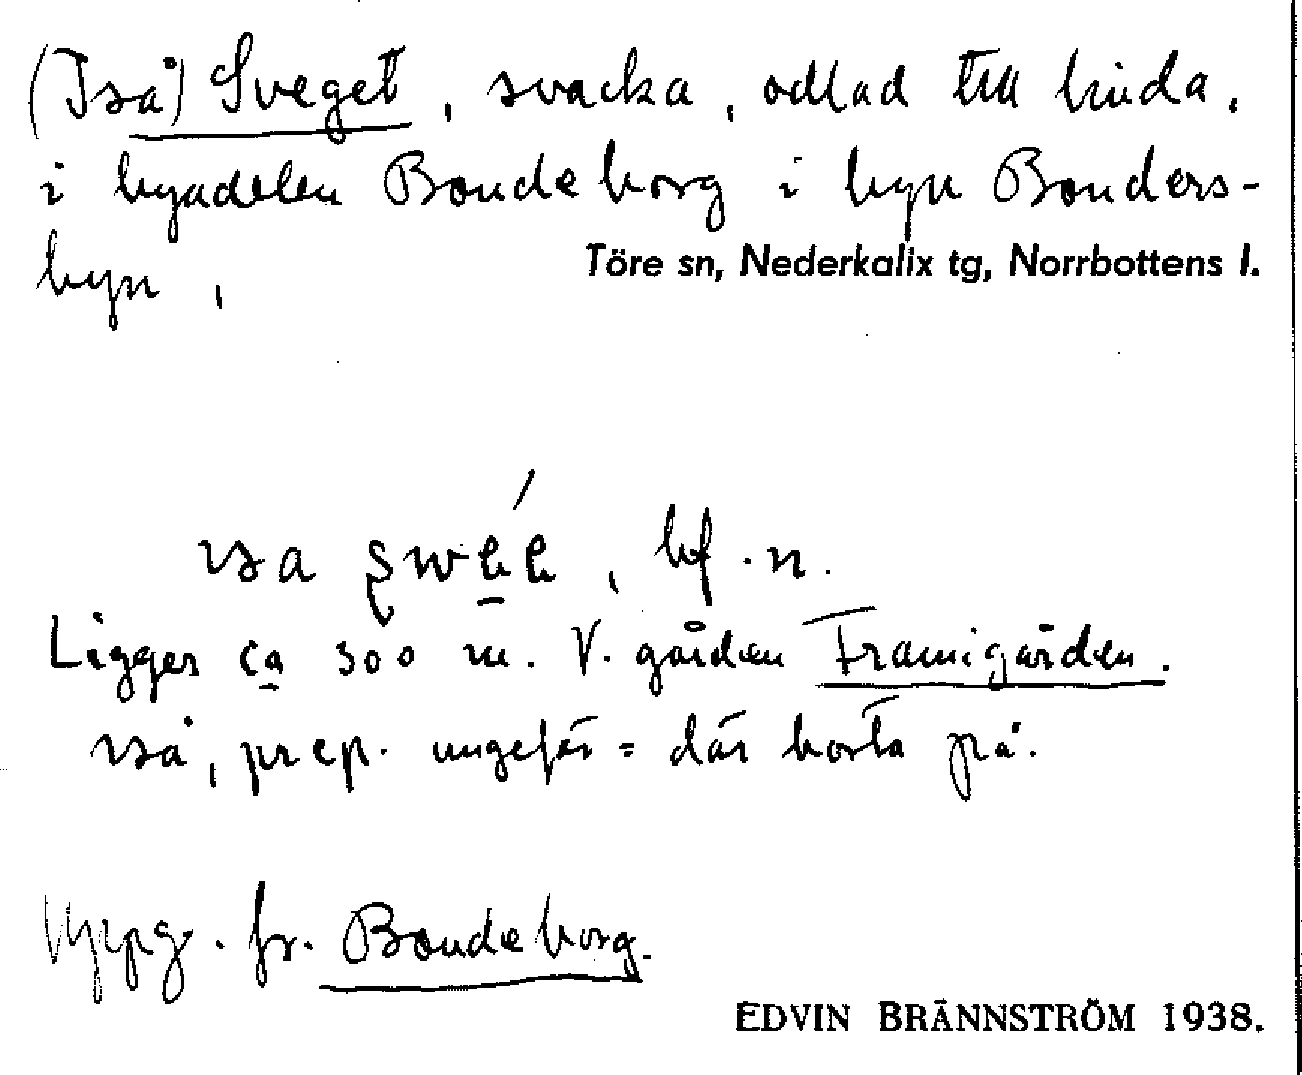 (Iså) Sveget, svacka, odlad till linda,
i byadelen Bondeborg i byn Bonders-
byn,
Töre sn, Nederkalix tg, Norrbottens l.
bf. n.
Ligger ca 300 m. V. gården Framigården.
iså, prep. ungefär = där borta på.
Uppg. fr. Bondeborg.
EDVIN BRÄNNSTRÖM 1938.